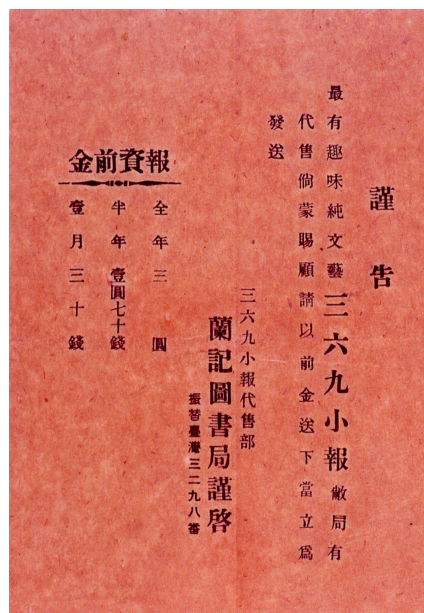 謹告
最有趣味純文藝三六九小報敝局有
代售倘蒙賜顧請以前金送下當立爲
發送
三六九小報代售部
蘭記圖書局謹啓
振替臺灣三二九八番
報資前金
全年三圓
半年壹圓七十錢
壹月三十錢